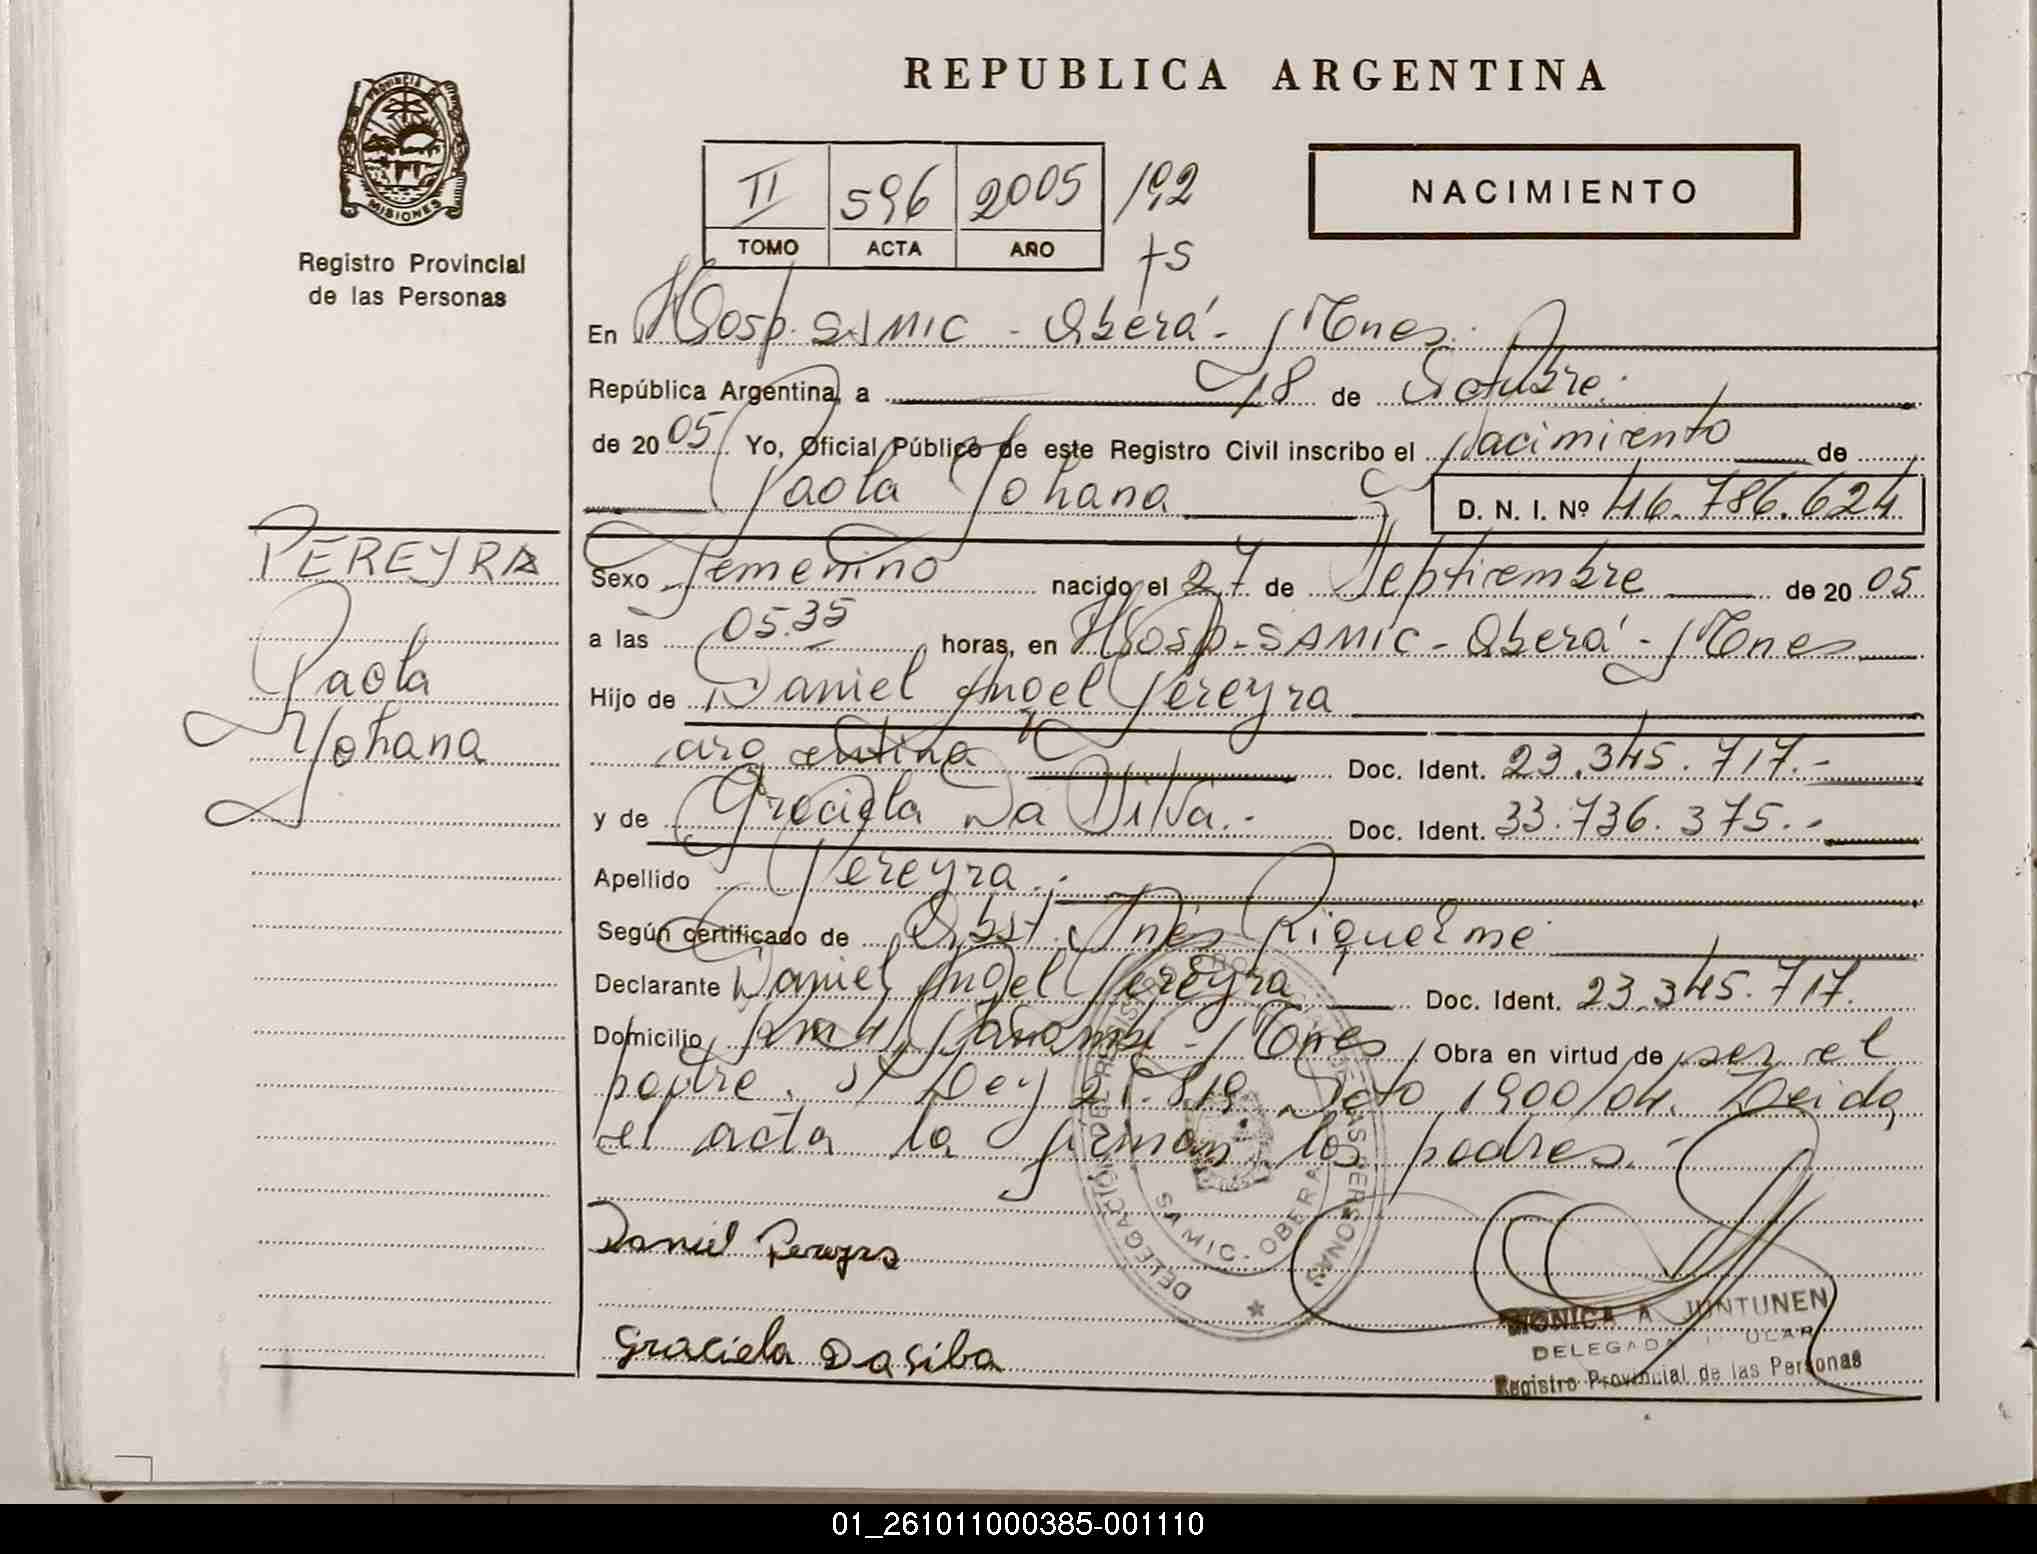 REPUBLICA ARGENTINA
PROVINCIA DE
MISIONES
Registro Provincial
de las Personas
II 596 2005 192
TOMO ACTA AÑO fs
NACIMIENTO
En Hosp. SAMIC - Oberá - Mnes.
República Argentina, a 18 de Octubre.
de 20 05 Yo, Oficial Público de este Registro Civil inscribo el Nacimiento de
Paola Yohana D. N. I. Nº 46.786.624
PEREYRA
Paola
Yohana
Sexo Femenino nacido el 27 de Septiembre de 20 05
a las 05.35 horas, en Hosp - SAMIC - Oberá - Mnes
Hijo de Daniel Angel Pereyra
argentina Doc. Ident. 23.345.717.-
y de Graciela Da Silva.- Doc. Ident. 33.736.375.-
Apellido Pereyra.-
Según certificado de Obst. Inés Riquelme
Declarante Daniel Angel Pereyra Doc. Ident. 23.345.717.
Domicilio Km 4, Panambí - Mnes, Obra en virtud de ser el
padre. S/ Ley 21.819 Dcto 1900/04. Leida
el acta la firman los padres.-
DELEGACION DEL REGISTRO DE LAS PERSONAS
SAMIC - OBERA
Daniel Pereyra
Graciela Da Silva
MONICA A JUNTUNEN
DELEGADA
Registro Provincial de las Personas
01_261011000385-001110